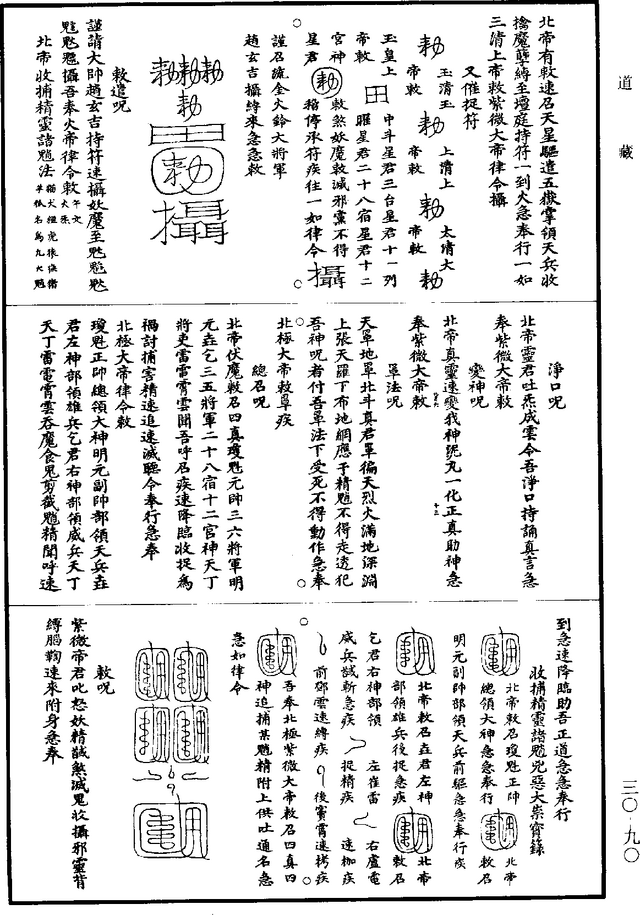 道藏
北帝有敕速召天星驅遣五嶽掌領天兵收
擒魔孽縛至壇庭持符一到火急奉行一如
三清上帝敕紫微大帝律令攝
又催捉符
玉清玉
帝敕
上清上
帝敕
太清大
帝敕
玉皇上
帝敕
中斗星君三台星君十一列
曜星君二十八宿星君十二
宮神
星君
敕煞妖魔敕滅邪黨不得
稽停承符疾往一如律令
攝
謹召流金火鈴大將軍
趙玄吉攝縛來急急敕
敕遣呪
謹請大帥趙玄吉持符速攝妖魔至
攝吾奉火帝律令敕
北帝收捕精靈諸魈法
淨口呪
北帝靈君吐炁成雲令吾淨口持誦真言急
奉紫微大帝敕
變神呪
北帝真靈速變我神混九一化正真助神急
奉紫微大帝敕
罩法呪
天罩地罩北斗真君罩徧天烈火滿地深淵
上張天羅下布地網應于精魈不得走透犯
吾神呪者付吾罩法下受死不得動作急奉
北極大帝敕罩疾
總召呪
北帝伏魔敕召四真瓊魁元帥三六將軍明
元垚乞三五將軍二十八宿十二宮神天丁
將吏雷雷霄雲聞吾呼召疾速降臨收捉為
禍討捕害精速追速滅聽令奉行急奉
北極大帝律令敕
瓊魁正帥總領大神明元副帥部領天兵垚
君左神部領雄兵乞君右神部領威兵天丁
天丁雷電霄雲吞魔食鬼剪截魈精聞呼速
到急速降臨助吾正道急急奉行
收捕精靈諸魈兇惡大祟寶籙
北帝敕召瓊魁正帥
總領大神急急奉行
北帝
敕召
明元副帥部領天兵前驅急急奉行疾
北帝敕召垚君左神
部領雄兵後捉急疾
北帝
敕召
乞君右神部領
威兵誡斬急疾
左崔雷
捉精疾
右盧電
速枷疾
前鄧雲速縛疾
後竇霄速拷疾
吾奉北極紫微大帝敕召四真四
神追捕某魈精附上供吐通名急
急如律令
敕呪
紫微帝君叱怒妖精誠煞滅鬼收攝邪靈背
縛腦鞫速來附身急奉
三〇-九〇